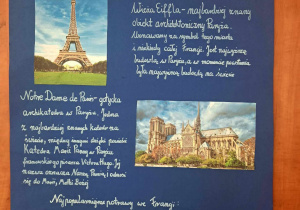 Wieża Eiffla - najbardziej znany
obiekt architektoniczny Paryża.
Uznawany za symbol tego miasta
i niekiedy całej Francji. Jest najwyższą
budowlą w Paryżu, a w momencie powstania
była najwyższą budowlą na świecie
Notre Dame de Paris - gotycka
archikatedra w Paryżu. Jedna
z najbardziej znanych katedr na
świecie, między innymi dzięki powieści
Katedra Marii Panny w Paryżu
francuskiego pisarza Victora Hugo. Jej
nazwa oznacza Naszej Panny, i odnosi
się do Marii, Matki Bożej
Najpopularniejsze potrawy we Francji: